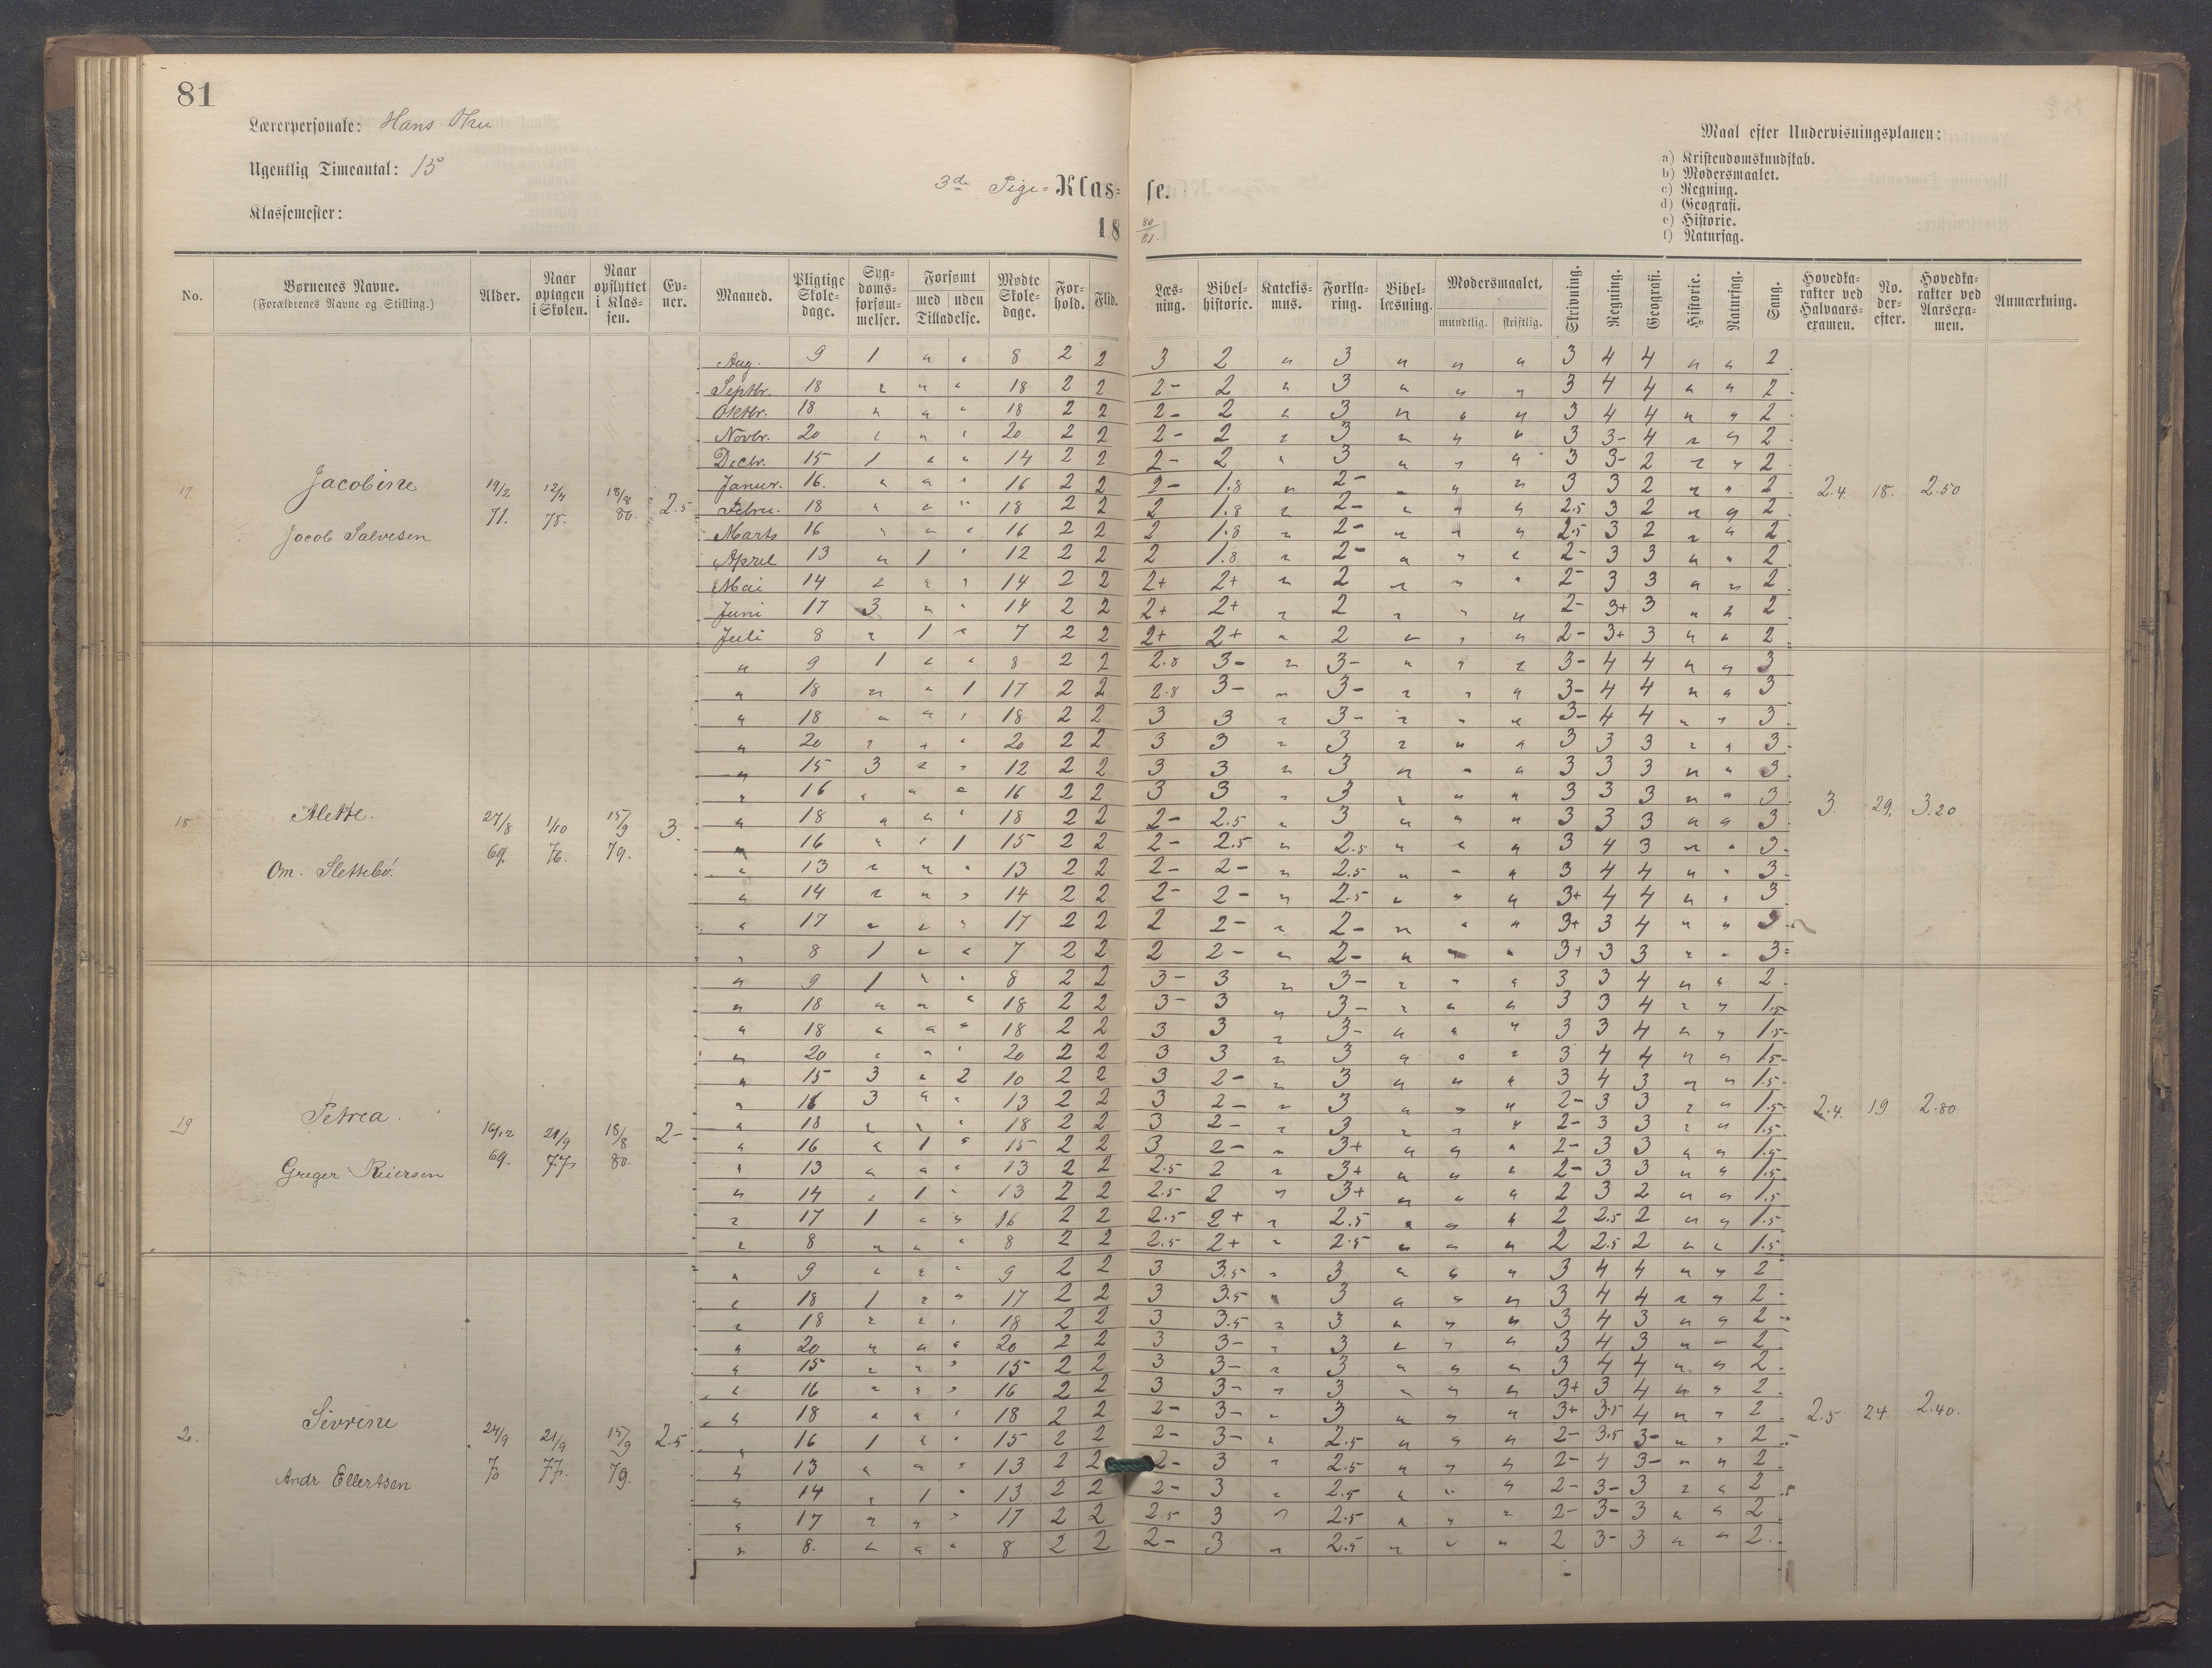 81
Lærerpersonale: Hans
Ugentlig Timeantal: 15
Klassemester:
3de Pige= Klas= se.
18 80/81.
Maal efter Undervisningsplanen:
a) Kristendomskundskab.
b) Modersmaalet.
c) Regning.
d) Geografi.
e) Historie.
f) Naturfag.
No. Børnenes Navne. (Forældrenes Navne og Stilling.) Alder. Naar optagen i Skolen. Naar opflyttet i Klassen. Evner. Maaned. Pligtige Skoledage. Sygdomsforsømmelser. Forsømt med uden Tilladelse. Mødte Skoledage. Forhold. Flid. Læsning. Bibelhistorie. Katekismus. Forklaring. Bibellæsning. Modersmaalet, mundtlig. skriftlig. Skrivning. Regning. Geografi. Historie. Naturfag. Sang. Hovedkarakter ved Halvaarsexamen. No. derefter. Hovedkarakter ved Aarsexamen. Anmærkning.
17. Jacobine
Jacob Salvesen
19/2 71. 18/8 80. 2.5 2.4. 18. 2.50
Aug. 9 1 " " 8 2 2 3 2 " 3 " " " 3 4 4 " " 2
Septbr. 18 " " " 18 2 2 2- 2 " 3 " " " 3 4 4 " " 2
Oktbr. 18 " " " 18 2 2 2- 2 " 3 " " " 3 4 4 " " 2
Novbr. 20 " " " 20 2 2 2- 2 " 3 " " " 3 3- 4 " " 2
Decbr. 15 1 " " 14 2 2 2- 2 " 3 " " " 3 3- 2 " " 2
Januar. 16. " " " 16 2 2 2- 1.8 " 2- " " " 3 3 2 " " 2
Febru. 18 " " " 18 2 2 2 1.8 " 2- " " " 2.5 3 2 " " 2
Marts 16 " " " 16 2 2 2 1.8 " 2- " " " 2.5 3 2 " " 2
April 13 " 1 " 12 2 2 2 1.8 " 2- " " " 2- 3 3 " " 2
Mai 14 " " " 14 2 2 2+ 2+ " 2 " " " 2- 3 3 " " 2
Juni 17 3 " " 14 2 2 2+ 2+ " 2 " " " 2- 3+ 3 " " 2
Juli 8 " 1 " 7 2 2 2+ 2+ " 2 " " " 2- 3+ 3 " " 2
18 Alette.
Om. Slettebö.
27/8 69. 1/10 76. 15/9 79. 3. 3. 29. 3.20
" 9 1 " " 8 2 2 2.8 3- " 3- " " " 3- 4 4 " " 3
" 18 " " 1 17 2 2 2.8 3- " 3- " " " 3- 4 4 " " 3
" 18 " " " 18 2 2 3 3 " 3- " " " 3- 4 4 " " 3
" 20 " " " 20 2 2 3 3 " 3 " " " 3 3 3 " " 3
" 15 3 " " 12 2 2 3 3 " 3 " " " 3 3 3 " " 3
" 16 " " " 16 2 2 3 3 " 3 " " " 3 3 3 " " 3
" 18 " " " 18 2 2 2- 2.5 " 3 " " " 3 3 3 " " 3
" 16 " " 1 15 2 2 2- 2.5 " 2.5 " " " 3 4 3 " " 3
" 13 " " " 13 2 2 2- 2- " 2.5 " " " 3 4 4 " " 3
" 14 " " " 14 2 2 2- 2- " 2.5 " " " 3+ 4 4 " " 3
" 17 " " " 17 2 2 2 2- " 2- " " " 3+ 3 4 " " 3
" 8 1 " " 7 2 2 2 2- " 2- " " " 3+ 3 3 " " 3
19 Petrea.
Greger Reiersen
16/12 69. 21/9 77. 18/8 80. 2- 2.4. 19 2.80
" 9 1 " " 8 2 2 3- 3 " 3- " " " 3 3 4 " " 2
" 18 " " " 18 2 2 3- 3 " 3- " " " 3 3 4 " " 1.5
" 18 " " " 18 2 2 3 3 " 3- " " " 3 3 4 " " 1.5
" 20 " " " 20 2 2 3 3 " 3 " " " 3 4 4 " " 1.5
" 15 3 " 2 10 2 2 3 2- " 3 " " " 3 4 3 " " 1.5
" 16 3 " " 13 2 2 3 2- " 3 " " " 2- 3 3 " " 1.5
" 18 " " " 18 2 2 3 2- " 3 " " " 2- 3 3 " " 1.5
" 16 " 1 " 15 2 2 3 2- " 3+ " " " 2- 3 3 " " 1.5
" 13 " " " 13 2 2 2.5 2 " 3+ " " " 2- 3 3 " " 1.5
" 14 " 1 " 13 2 2 2.5 2 " 3+ " " " 2 3 2 " " 1.5
" 17 1 " " 16 2 2 2.5 2+ " 2.5 " " " 2 2.5 2 " " 1.5
" 8 " " " 8 2 2 2.5 2+ " 2.5 " " " 2 2.5 2 " " 1.5
20. Sivrine
Andr Ellertsen
24/9 70 21/9 77. 15/9 79. 2.5 2.5 24 2.40.
" 9 " " " 9 2 2 3 3.5 " 3 " " " 3 4 4 " " 2
" 18 1 " " 17 2 2 3 3.5 " 3 " " " 3 4 4 " " 2
" 18 " " " 18 2 2 3 3.5 " 3 " " " 3 4 3 " " 2
" 20 " " " 20 2 2 3 3- " 3 " " " 3 4 3 " " 2
" 15 " " " 15 2 2 3 3- " 3 " " " 3 4 4 " " 2
" 16 " " " 16 2 2 3 3- " 3 " " " 3+ 3 4 " " 2
" 18 " " " 18 2 2 2- 3- " 3 " " " 3+ 3.5 4 " " 2
" 16 1 " " 15 2 2 2- 3- " 2.5 " " " 2- 3.5 3- " " 2
" 13 " " " 13 2 2 2- 3 " 2.5 " " " 2- 4 3- " " 2
" 14 " 1 " 13 2 2 2- 3 " 2.5 " " " 2- 3- 3 " " 2
" 17 " " " 17 2 2 2.5 3 " 2.5 " " " 2- 3- 3 " " 2
" 8. " " " 8 2 2 2- 3 " 2.5 " " " 2 3- 3 " " 2